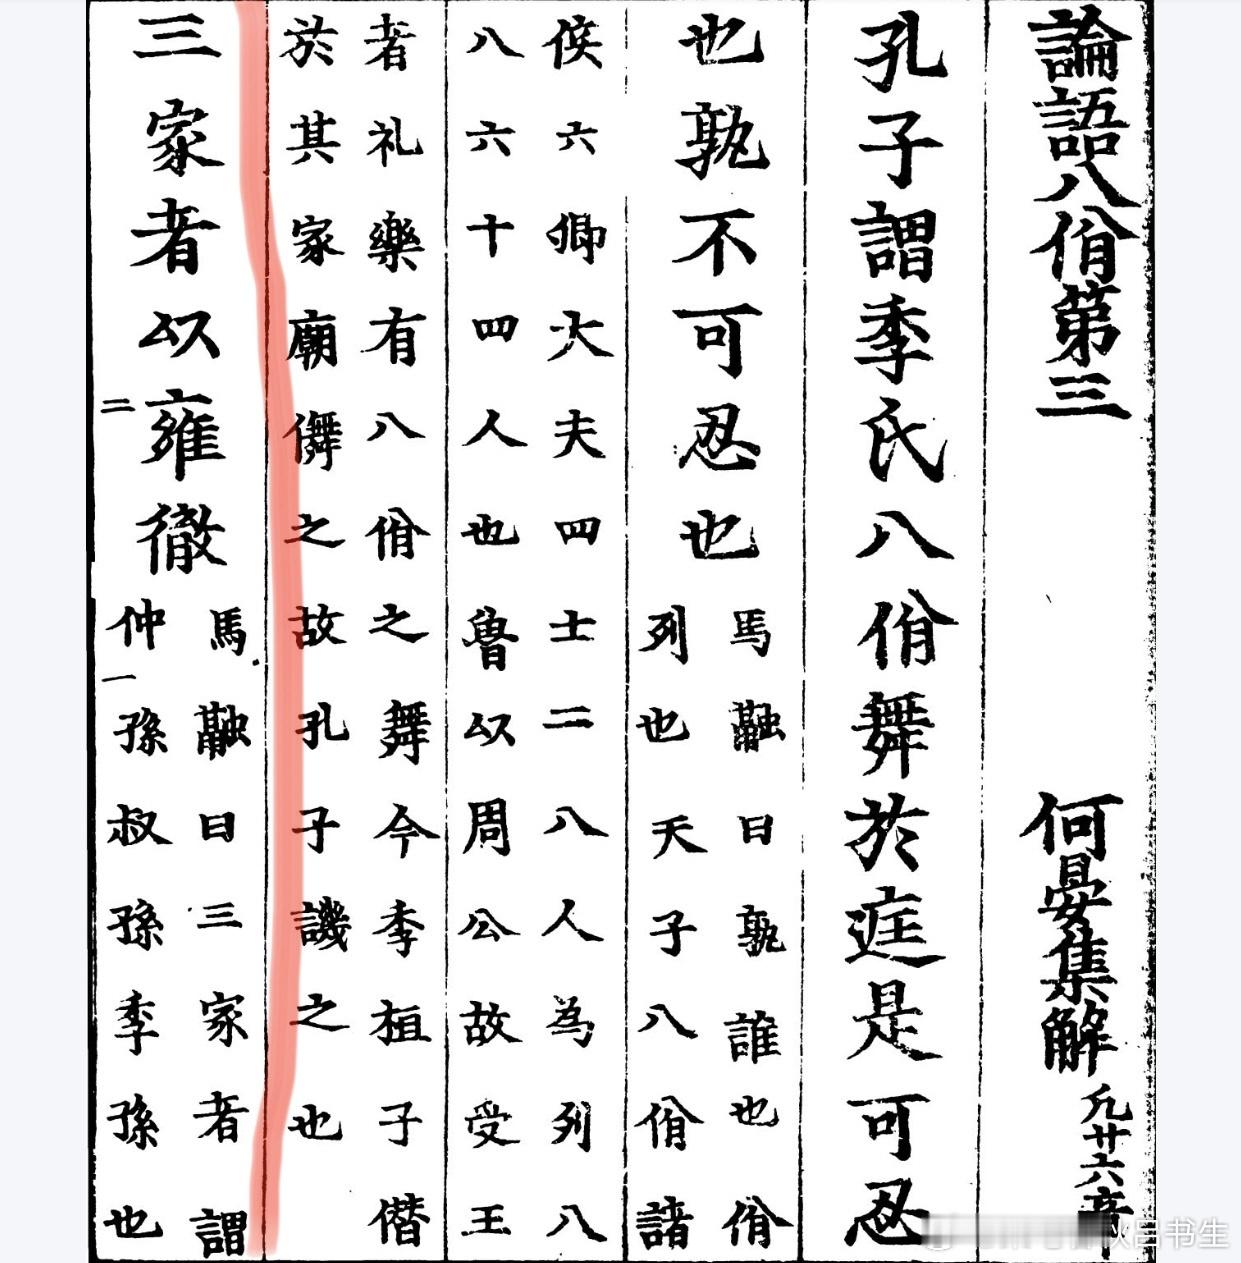 論語八佾第三 何晏集解 凡廿六章
孔子謂季氏八佾舞於庭是可忍
也孰不可忍也
馬融曰孰誰也佾
列也天子八佾諸
侯六卿大夫四士二八人為列八
八六十四人也魯以周公故受王
者礼樂有八佾之舞今季桓子僭
於其家廟儛之故孔子譏之也
三家者以雍徹
二
馬融曰三家者謂
仲孫叔孫季孫也
一
书生